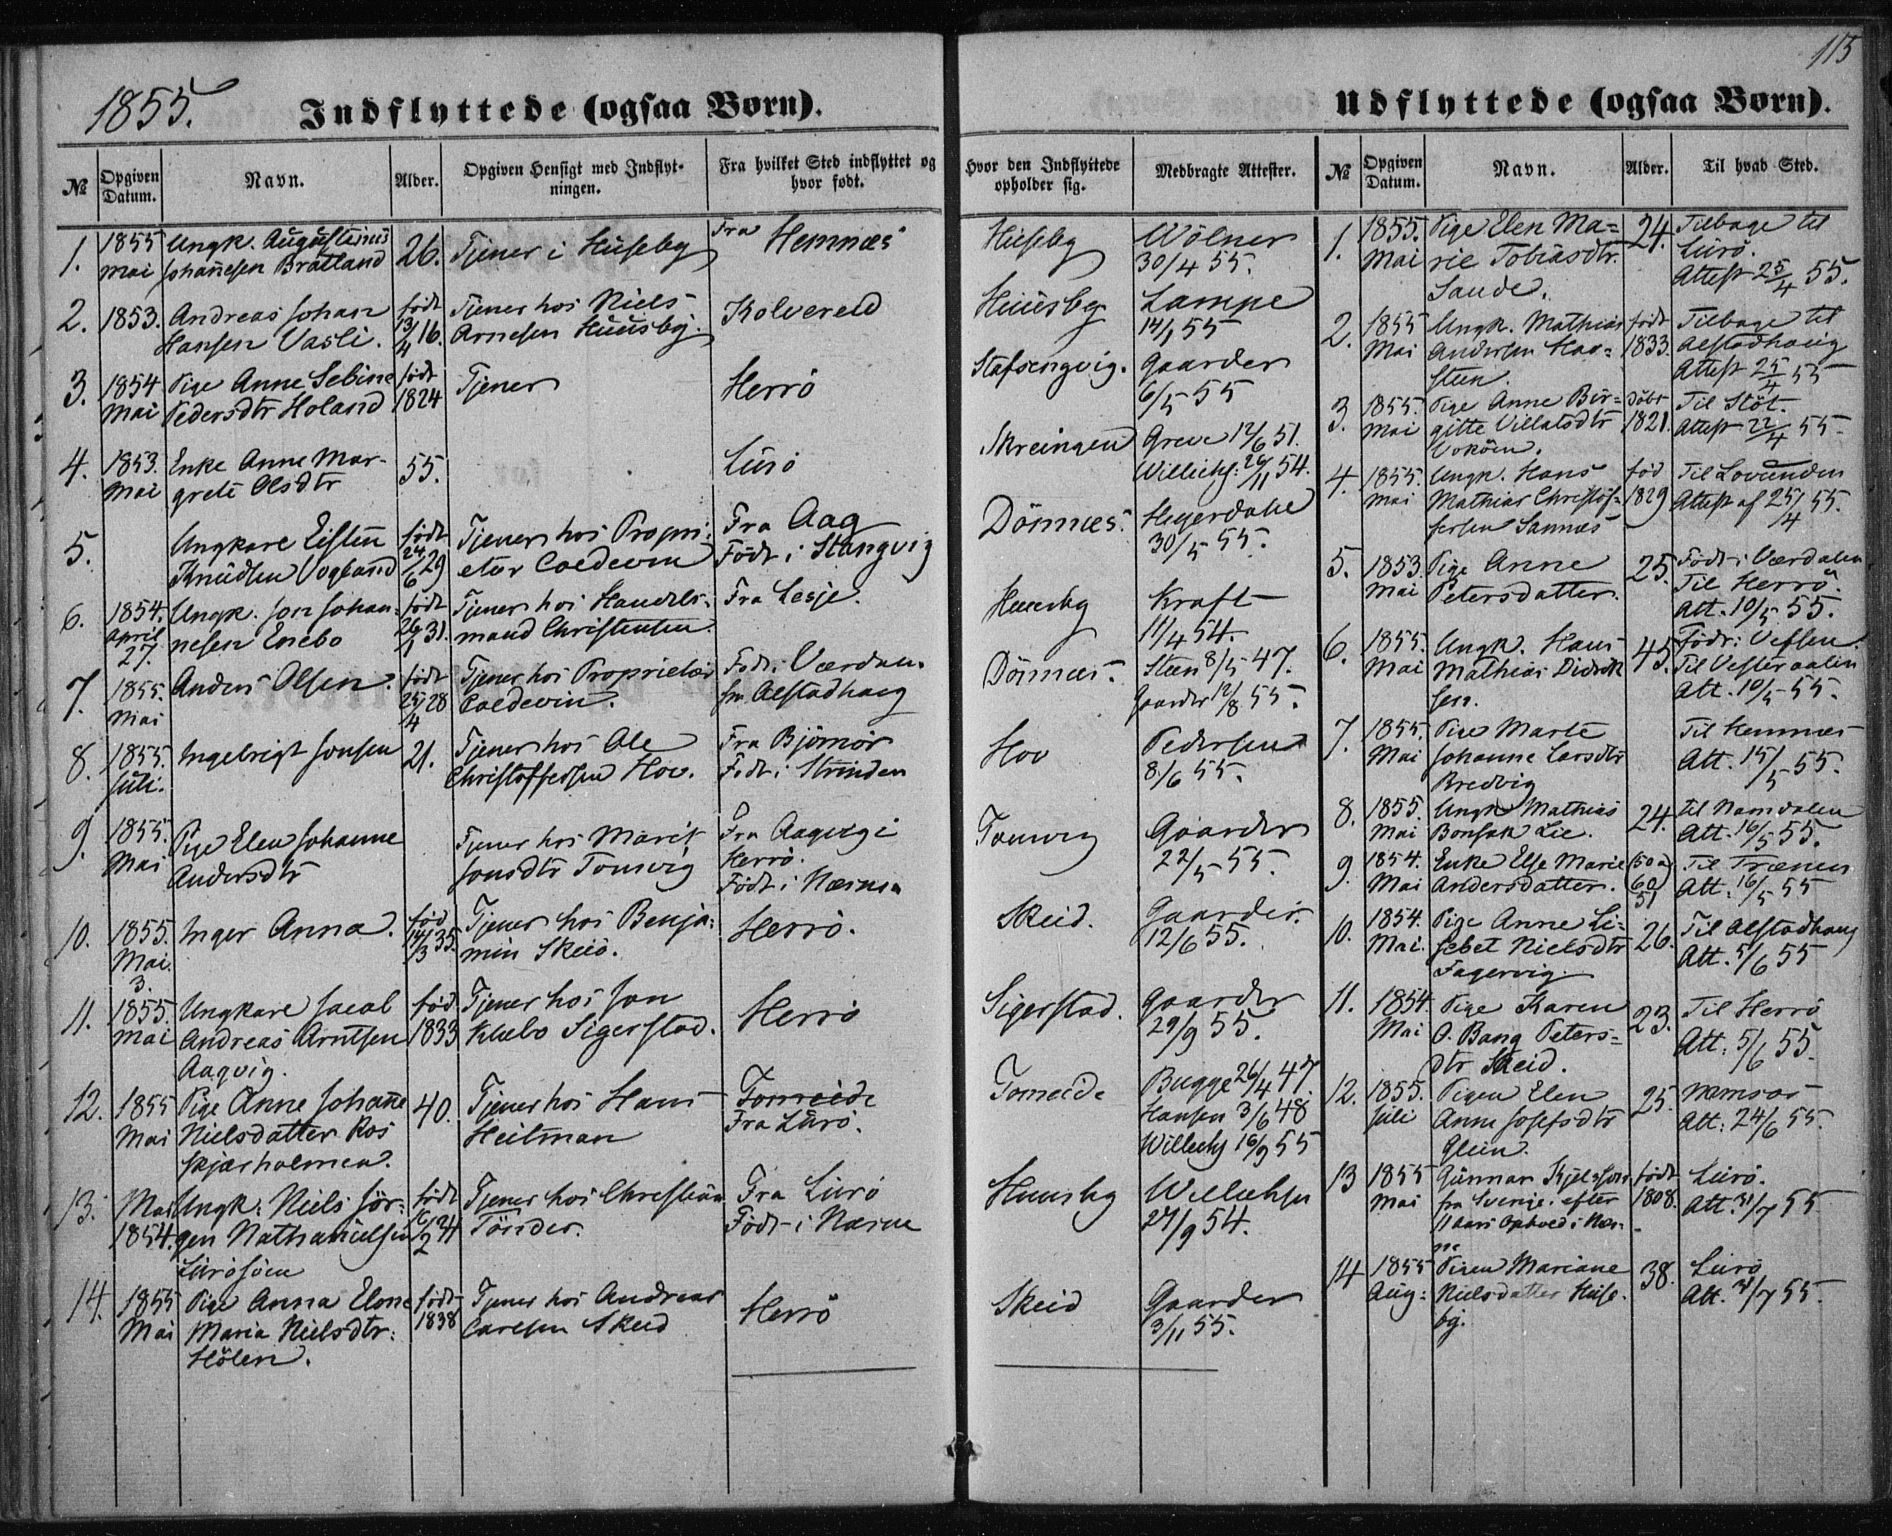 1855.
Indflyttede (ogsaa Børn).
№
Opgiven Datum.
Navn.
Alder.
Opgiven Hensigt med Indflyt-
ningen.
Fra hvilket Sted indflyttet og
hvor født.
1.
1855
Mai
Ungk. Augustinus
Johannesen Bratland
26.
Tjener i Huseby
Fra Hemnæs
2.
1853.
Andreas Johan
Hansen Vasli.
født
13/4 16.
Tjener hos Niels
Arnesen Huusby.
Kolvereid
3.
1854
Mai
Pige Anne Sebine
Pedersdtr Holand
født
1824
Tjener
Herrö
4.
1853.
Mai
Enke Anne Mar-
grete Olsdtr
55.
Lurö
5.
Ungkare Eisten
Knudsen Vogland
født
24/6 29
Tjener hos Propri-
etær Coldevin
Fra Aag
Födt i Stangvig
6.
1854.
april
27.
Ungk. Jon Johan-
nesen Enebo
født
26/1 31.
Tjener hos Handels-
mand Christensen.
Fra Lesje.
7.
1855.
Mai
Anders Olsen.
født
25/4 28
Tjener hos Proprietær
Coldevin.
Født i Værdalen
fra Alstadhaug
8.
1855.
Juli.
Ingebrigt Jonsen
21.
Tjener hos Ole
Christoffersen Hov.
Fra Bjömör
Født i Strinden
9.
1855.
Mai
Pige Elen Johanne
Andersdtr
Tjener hos Marit
Jonsdtr Tomvig
Fra Aagvig i
Herrö.
Födt i Næsna
10.
1855.
Mai.
3.
Inger Anna.
fød
14/3 35.
Tjener hos Benja-
min Skeid.
Herrö.
11.
1855.
Mai
Ungkare Jacob
Andreas Arntsen
Aagvig.
fød
1833
Tjener hos Jon
Klæbo Sigerstad.
Herrö
12.
1855
Mai
Pige Anne Johanne
Nielsdatter Ros
skjærholmen.
40.
Tjener hos Hans
Heitman
Tomeide
Fra Lurö.
13.
Mai
1854.
Ungk: Niels Jör-
gen Nathanielsen
Lurösöen
født
10/2 24
Tjener hos Christian
Tönder.
Fra Lurö
Födt i Næsne
14.
1855
Mai
Pige Anna Elene
Maria Nielsdtr:
Hölen.
født
1838
Tjener hos Andreas
Carlsen Skeid
Herrö
115
Udflyttede (ogsaa Børn).
Hvor den Indflyttede
opholder sig.
Medbragte Attester.
№
Opgiven Datum.
Navn.
Alder.
Til hvad Sted.
Huseby
Wölner
30/4 55.
Huusby
Lampe
14/1 55
Stafsengvig.
Gaarder
6/5 55
Skreingen
Greve 12/6 51.
Willichs: 26/11 54.
Dönnæs.
Heyerdahl
30/5 55.
Huusby
Kraft
11/4 54.
Dönnæs.
Steen 8/5 47.
Gaarder 12/8 55.
Hov
Pedersen
8/6 55.
Tomvig
Gaarder
22/5 55.
Skeid.
Gaarder.
12/6 55.
Sigerstad.
Gaarder
29/9 55.
Tomeide
Bugge 26/4 47.
Hansen 3/6 48
Willechs 16/9 55
Huusby
Willichsen
27/9 54.
Skeid
Gaarder
3/11 55.
1.
1855.
Mai
Pige Elen Ma-
rie Tobiasdtr.
Sande.
24.
Tilbage til
Lurö.
Attest 25/4 55.
2.
1855
Mai
Ungk. Mathias
Andersen Haa-
steen.
født
1833.
Tilbage til
Alstadhaug
Attest 25/4 55
3.
1855.
Mai
Pige Anne Bir-
gitte Villatsdtr
döbt
1821.
Til Stöt.
Attest 22/4 55
4.
1855.
Mai
Ungk. Hans
Mathias Christof-
fersen Sannæs
fød
1829
Til Lovunden
Attest af 25/4 55.
5.
1853.
Mai
Pige Anne
Petersdatter.
25.
Født i Værdalen
Til Herrö
Att. 10/5 55.
6.
1855.
Mai
Ungk. Hans
Mathias Didrik
sen.
45.
Födt: Vefsen.
Til Vesteraalen
Att. 10/5 55.
7.
1855.
Mai
Pige Marte
Johanne Larsdtr
Bredvig
Til Hemnæs
Att. 15/5 55.
8.
1855.
Mai
Ungk Mathias
Bonsak Lie.
24.
Til Namdalen
Att. 16/5 55.
9.
1854.
Mai
Enke Else Marie
Andersdatter.
(50 a
60)
51
Til Trænen
Att. 16/5 55
10.
1854.
Mai.
Pige Anne Li-
sebet Nielsdtr
Fagervig.
26.
Til Alstadhaug
Att. 5/6 55
11.
1854.
Mai
Pige Karen
O. Bang Peters-
dtr Skeid.
23.
Til Herrö
Att. 5/6 55.
12.
1855.
Juli
Pigen Elen
Anne Josefsdtr
Glein.
25.
Att: 24/6 55.
13
1855
Mai
Gunnar Kjelsson
fra Sverje: efter
11 aars Ophold i Næs-
ne
født
1808.
Lurö.
Att. 31/7 55
14
1855
Aug:
Pigen Mariane
Nielsdatter Huse-
by.
38.
Lurö
Att. 31/7 55.